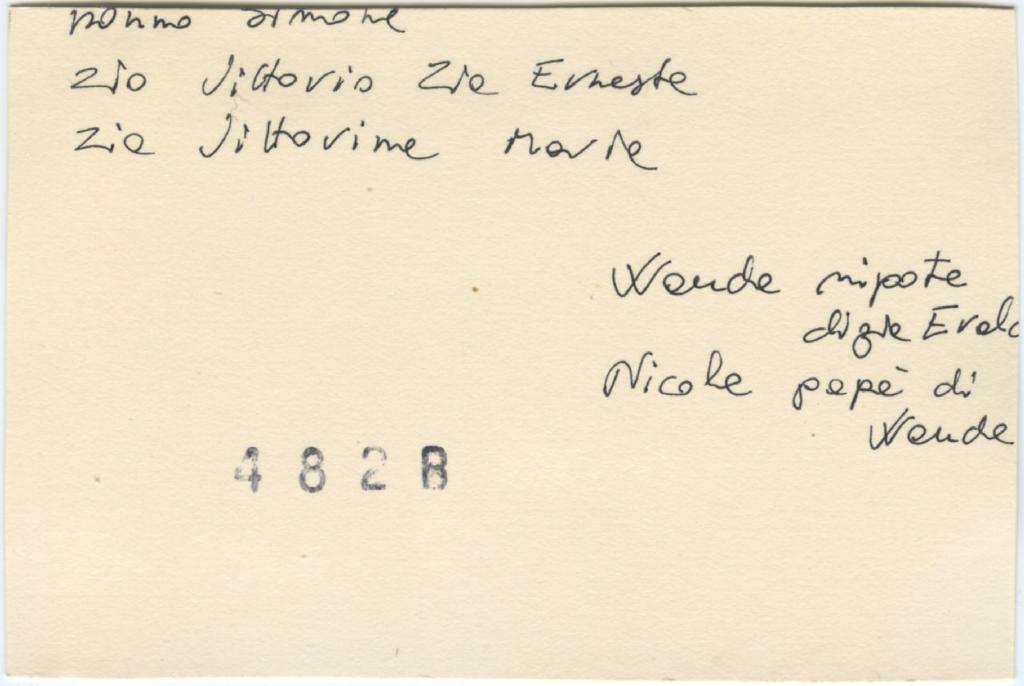 nonno Simone
zio Vittorio Zia Ernesta
zia Vittorina Maria
Wanda nipote
di zia Eval
Nicola papà di
Wanda
4 8 2 8